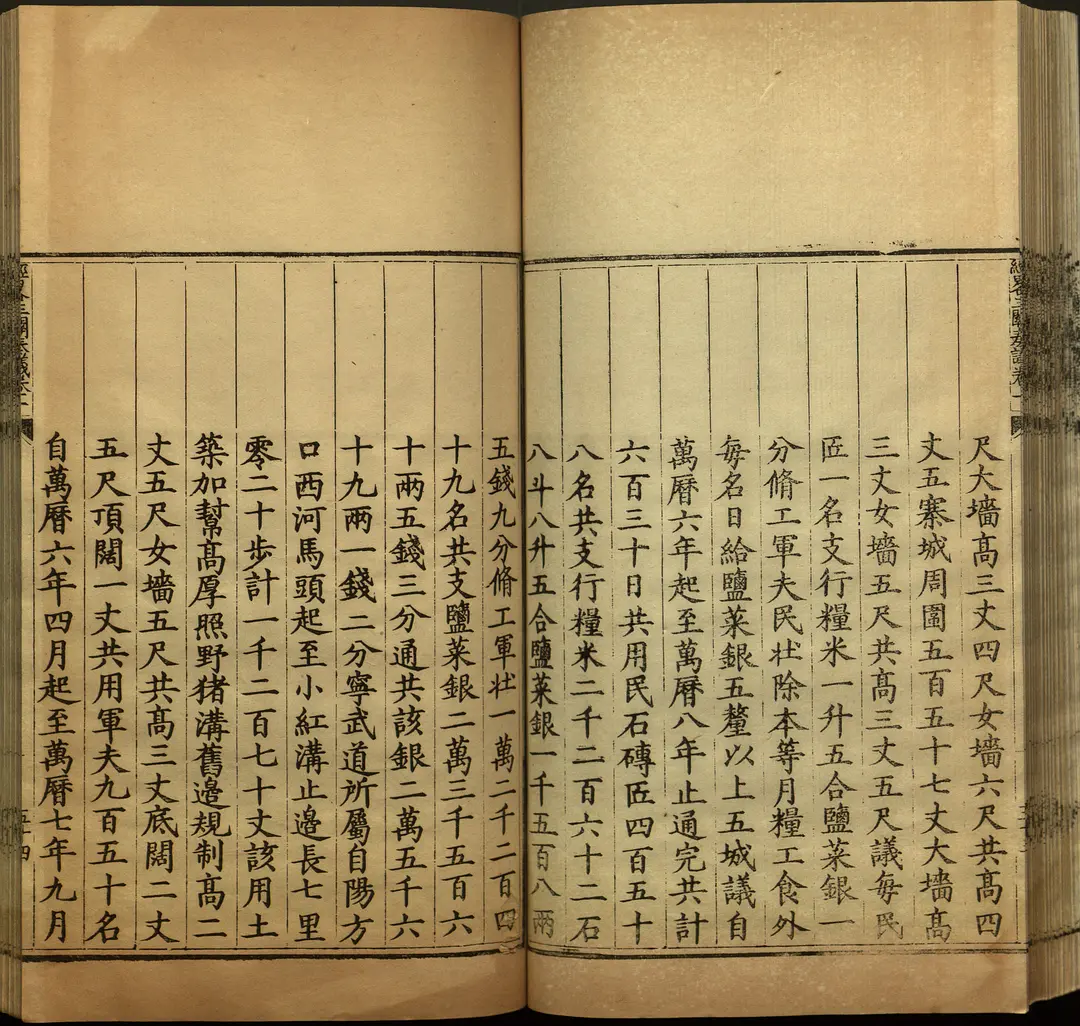 尺大墻髙三丈四尺女墻六尺共髙四
丈五寨城周圍五百五十七丈大墻髙
三丈女墻五尺共髙三丈五尺議每民
匠一名支行糧米一升五合鹽菜銀一
分脩工軍夫民壯除本等月糧工食外
每名日給鹽菜銀五釐以上五城議自
萬曆六年起至萬曆八年止通完共計
六百三十日共用民石磚匠四百五十
八名共支行糧米二千二百六十二石
八斗八升五合鹽菜銀一千五百八兩
五錢九分脩工軍壯一萬二千二百四
十九名共支鹽菜銀二萬三千五百六
十兩五錢三分通共該銀二萬五千六
十九兩一錢二分寧武道所屬自陽方
口西河馬頭起至小紅溝止邉長七里
零二十歩計一千二百七十丈該用土
築加幫髙厚照野猪溝舊邉規制髙二
丈五尺女墻五尺共髙三丈底闊二丈
五尺頂闊一丈共用軍夫九百五十名
自萬曆六年四月起至萬曆七年九月